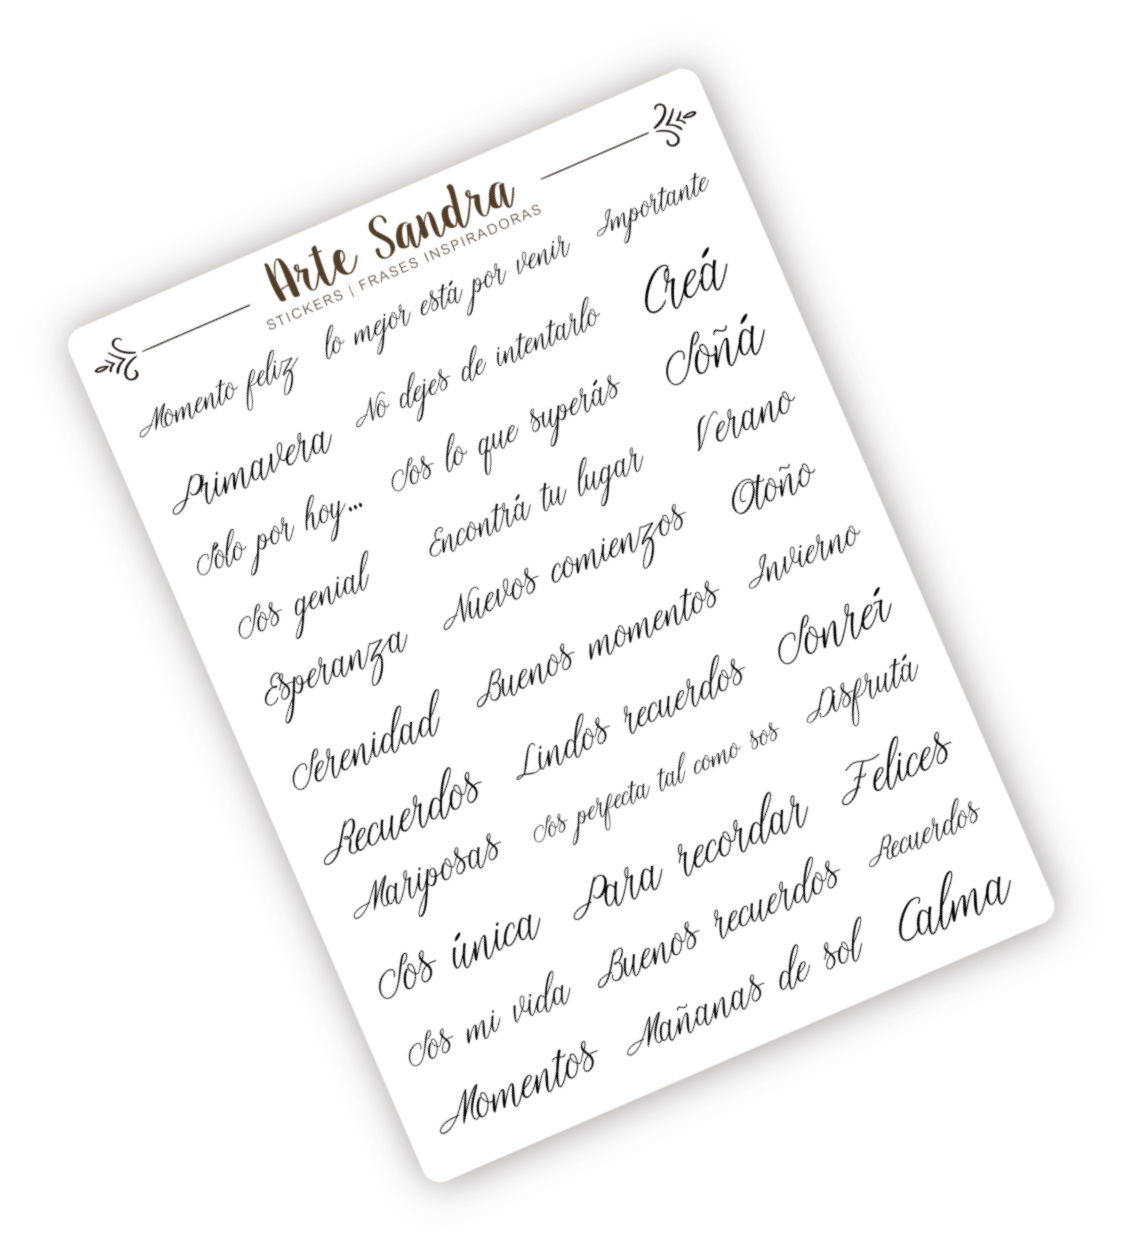 Arte Sandra
STICKERS | FRASES INSPIRADORAS
Momento feliz
lo mejor está por venir
Importante
Primavera
No dejes de intentarlo
Creá
Solo por hoy...
Sos lo que superás
Soñá
Sos genial
Encontrá tu lugar
Verano
Esperanza
Nuevos comienzos
Otoño
Serenidad
Buenos momentos
Invierno
Recuerdos
Lindos recuerdos
Sonreí
Mariposas
Sos perfecta tal como sos
Disfrutá
Sos única
Para recordar
Felices
Sos mi vida
Buenos recuerdos
Recuerdos
Momentos
Mañanas de sol
Calma